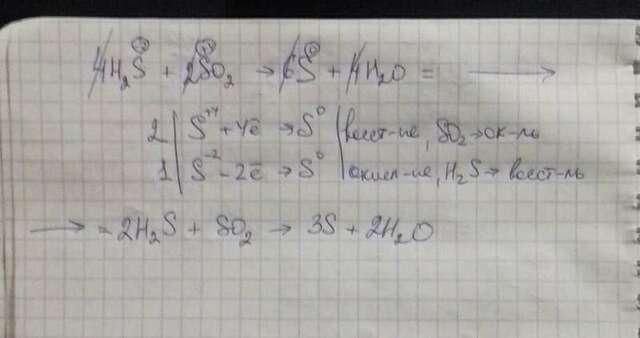 4H₂S + 2SO₂ → 6S + 4H₂O = →
2 | S⁺⁴ + 4ē → S⁰ | восст-ие, SO₂ → ок-ль
1 | S⁻² - 2ē → S⁰ | окисл-ие, H₂S → восст-ль
→ = 2H₂S + SO₂ → 3S + 2H₂O